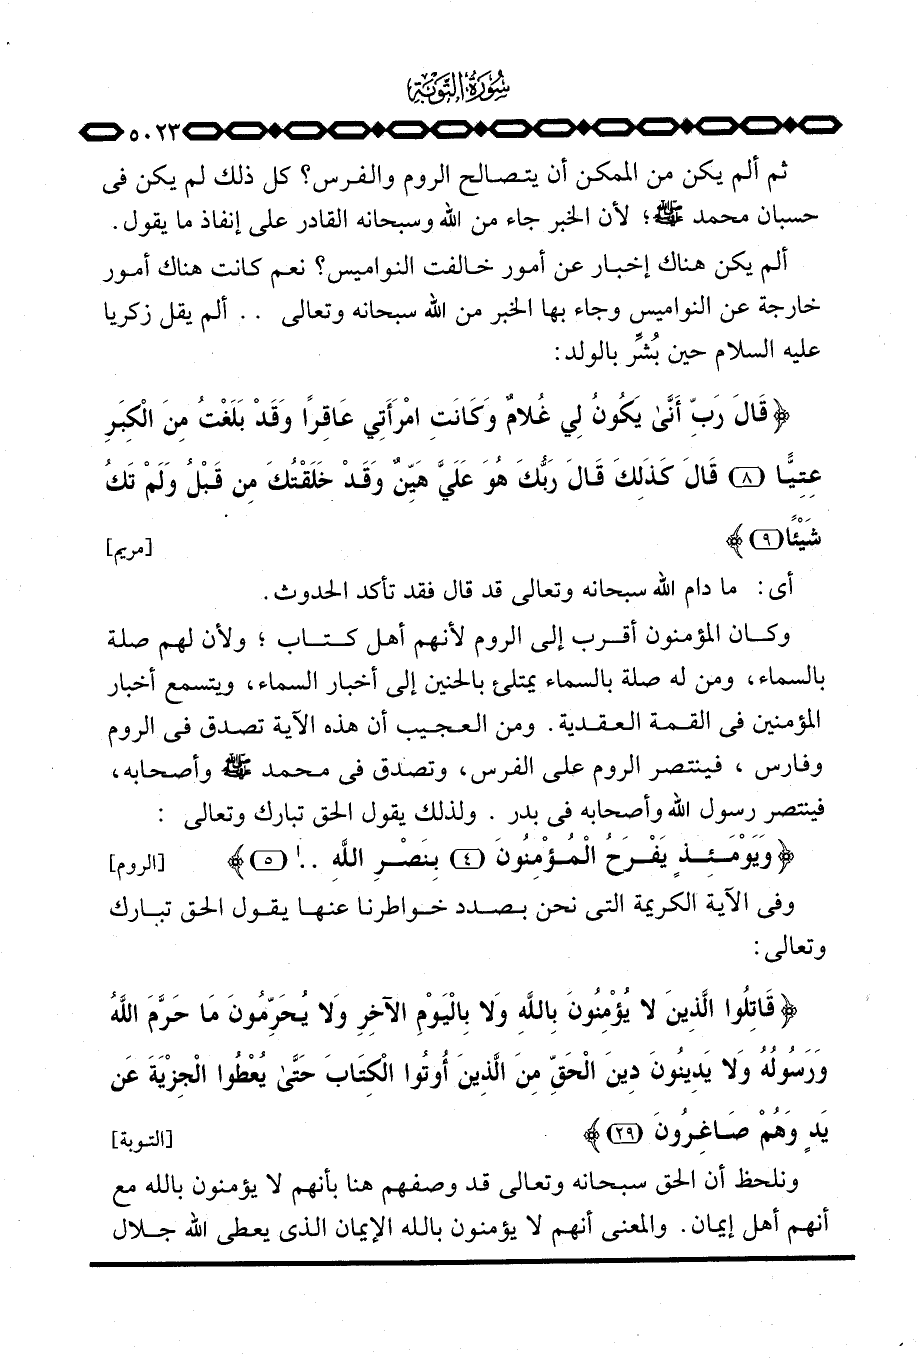 سُورَةُ التَّوْبَةِ
٥٠٢٣
ثم ألم يكن من الممكن أن يتصالح الروم والفرس؟ كل ذلك لم يكن فى
حسبان محمد ﷺ؛ لأن الخبر جاء من الله وسبحانه القادر على إنفاذ ما يقول.
ألم يكن هناك إخبار عن أمور خالفت النواميس؟ نعم كانت هناك أمور
خارجة عن النواميس وجاء بها الخبر من الله سبحانه وتعالى .. ألم يقل زكريا
عليه السلام حين بُشِّر بالولد:
﴿ قَالَ رَبِّ أَنَّىٰ يَكُونُ لِي غُلَامٌ وَكَانَتِ امْرَأَتِي عَاقِرًا وَقَدْ بَلَغْتُ مِنَ الْكِبَرِ
عِتِيًّا (٨) قَالَ كَذَلِكَ قَالَ رَبُّكَ هُوَ عَلَيَّ هَيِّنٌ وَقَدْ خَلَقْتُكَ مِن قَبْلُ وَلَمْ تَكُ
شَيْئًا (٩) ﴾ [مريم]
أى: ما دام الله سبحانه وتعالى قد قال فقد تأكد الحدوث.
وكان المؤمنون أقرب إلى الروم لأنهم أهل كتاب ؛ ولأن لهم صلة
بالسماء، ومن له صلة بالسماء يمتلئ بالحنين إلى أخبار السماء، ويتسمع أخبار
المؤمنين فى القمة العقدية. ومن العجيب أن هذه الآية تصدق فى الروم
وفارس ، فينتصر الروم على الفرس، وتصدق فى محمد ﷺ وأصحابه،
فينتصر رسول الله وأصحابه فى بدر . ولذلك يقول الحق تبارك وتعالى :
﴿ وَيَوْمَئِذٍ يَفْرَحُ الْمُؤْمِنُونَ (٤) بِنَصْرِ اللَّهِ .. (٥) ﴾ [الروم]
وفى الآية الكريمة التى نحن بصدد خواطرنا عنها يقول الحق تبارك
وتعالى:
﴿ قَاتِلُوا الَّذِينَ لا يُؤْمِنُونَ بِاللَّهِ وَلا بِالْيَوْمِ الآخِرِ وَلا يُحَرِّمُونَ مَا حَرَّمَ اللَّهُ
وَرَسُولُهُ وَلا يَدِينُونَ دِينَ الْحَقِّ مِنَ الَّذِينَ أُوتُوا الْكِتَابَ حَتَّىٰ يُعْطُوا الْجِزْيَةَ عَن
يَدٍ وَهُمْ صَاغِرُونَ (٢٩) ﴾ [التوبة]
ونلحظ أن الحق سبحانه وتعالى قد وصفهم هنا بأنهم لا يؤمنون بالله مع
أنهم أهل إيمان. والمعنى أنهم لا يؤمنون بالله الإيمان الذى يعطى الله جلال